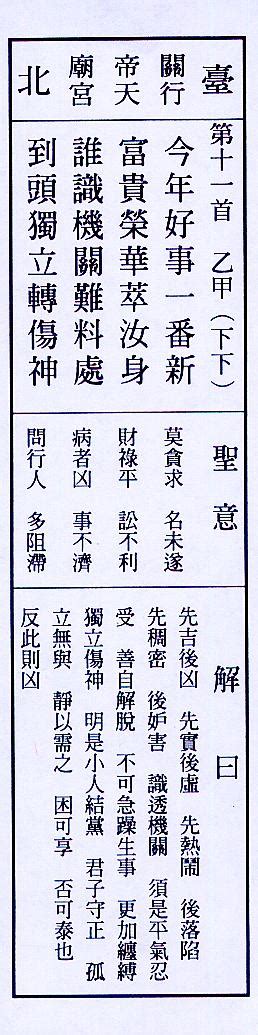 臺 關行 帝天 廟宮 北
第十一首 乙甲(下下)
今年好事一番新
富貴榮華萃汝身
誰識機關難料處
到頭獨立轉傷神
聖意
莫貪求 名未遂
財祿平 訟不利
病者凶 事不濟
問行人 多阻滯
解曰
先吉後凶 先實後虛 先熱鬧 後落陷
先稠密 後妒害 識透機關 須是平氣忍
受 善自解脫 不可急躁生事 更加纏縛
獨立傷神 明是小人結黨 君子守正 孤
立無與 靜以需之 困可享 否可泰也
反此則凶